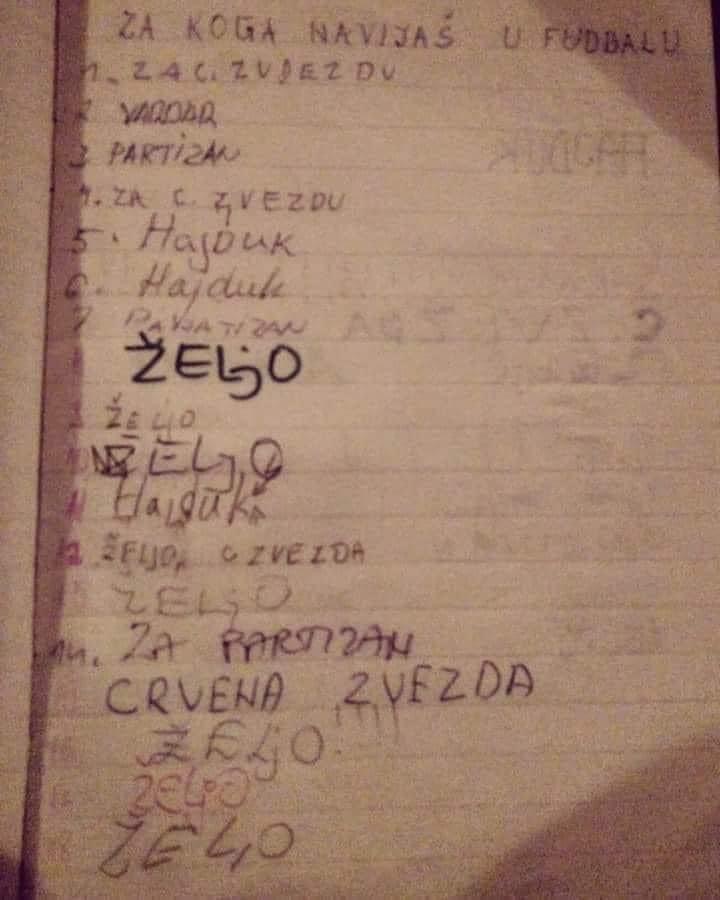 ZA KOGA NAVIJAŠ U FUDBALU
1. ZA C. ZVJEZDU
2 VARDAR
3 PARTIZAN
4. ZA C. ZVEZDU
5. HajDUK
6. Hajduk
7 PARTIZAN
ŽELJO
ŽELJO
ŽELJO
HajdUk
12 ŽELJO, C ZVEZDA
ŽELJO
14. ZA PARTIZAN
CRVENA ZVEZDA
ŽELJO!!!!
ŽELJO
ŽELJO